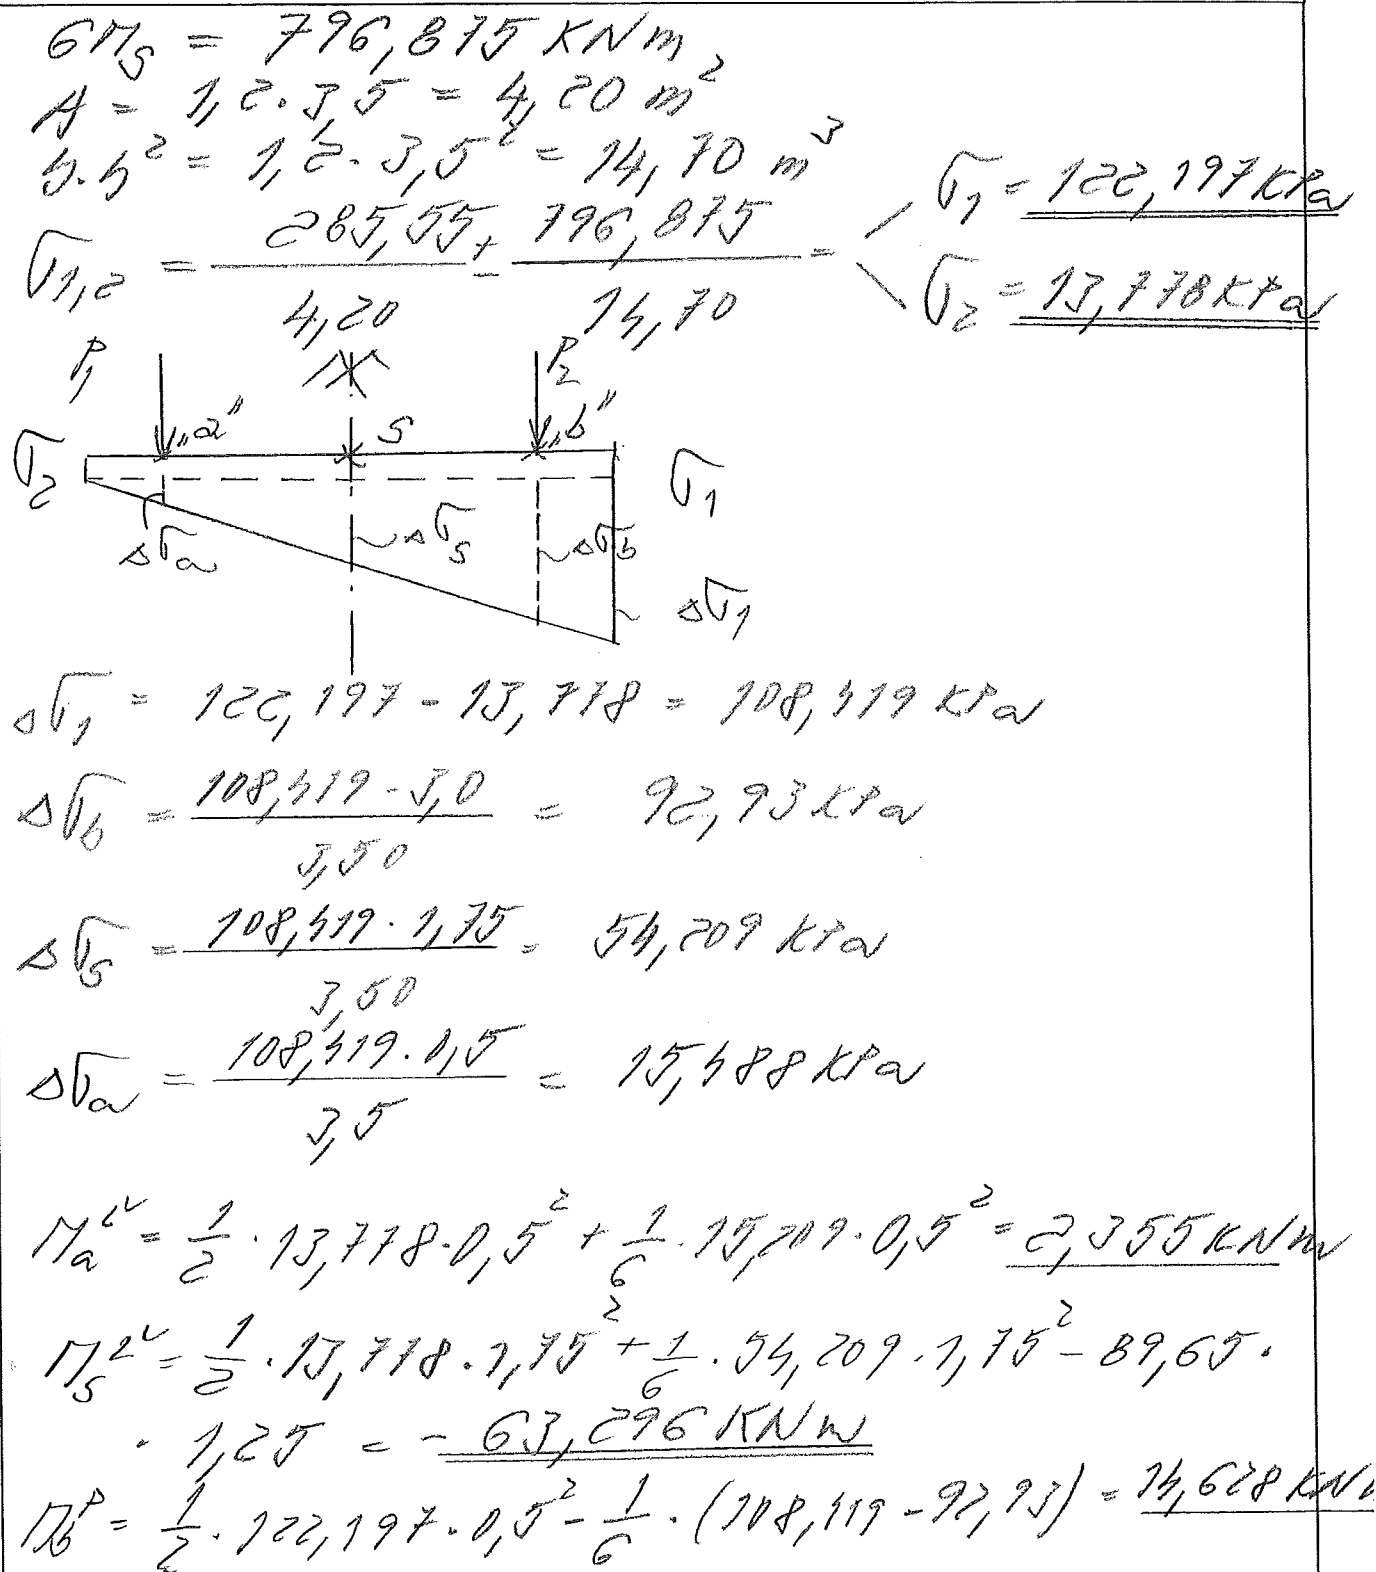 6M_S = 796,875 KNm
A = 1,2 · 3,5 = 4,20 m²
b·h² = 1,2 · 3,5² = 14,70 m³
σ_1,2 = 285,55/4,20 ± 796,875/14,70 = σ_1 = 122,197 KPa
σ_2 = 13,778 KPa
P_1 P_2
"a" S "b"
σ_2 σ_1
Δσ_a Δσ_S Δσ_b
Δσ_1
Δσ_1 = 122,197 - 13,778 = 108,419 KPa
Δσ_b = 108,419 · 3,0 / 3,50 = 92,93 KPa
Δσ_S = 108,419 · 1,75 / 3,50 = 54,209 KPa
Δσ_a = 108,419 · 0,5 / 3,5 = 15,488 KPa
M_a^L = 1/2 · 13,778 · 0,5² + 1/6 · 15,209 · 0,5² = 2,355 KNm
M_S^L = 1/2 · 13,778 · 1,75² + 1/6 · 54,209 · 1,75² - 89,65 ·
· 1,25 = - 63,296 KNm
M_b^P = 1/2 · 122,197 · 0,5² - 1/6 · (108,419 - 92,93) = 14,628 KN